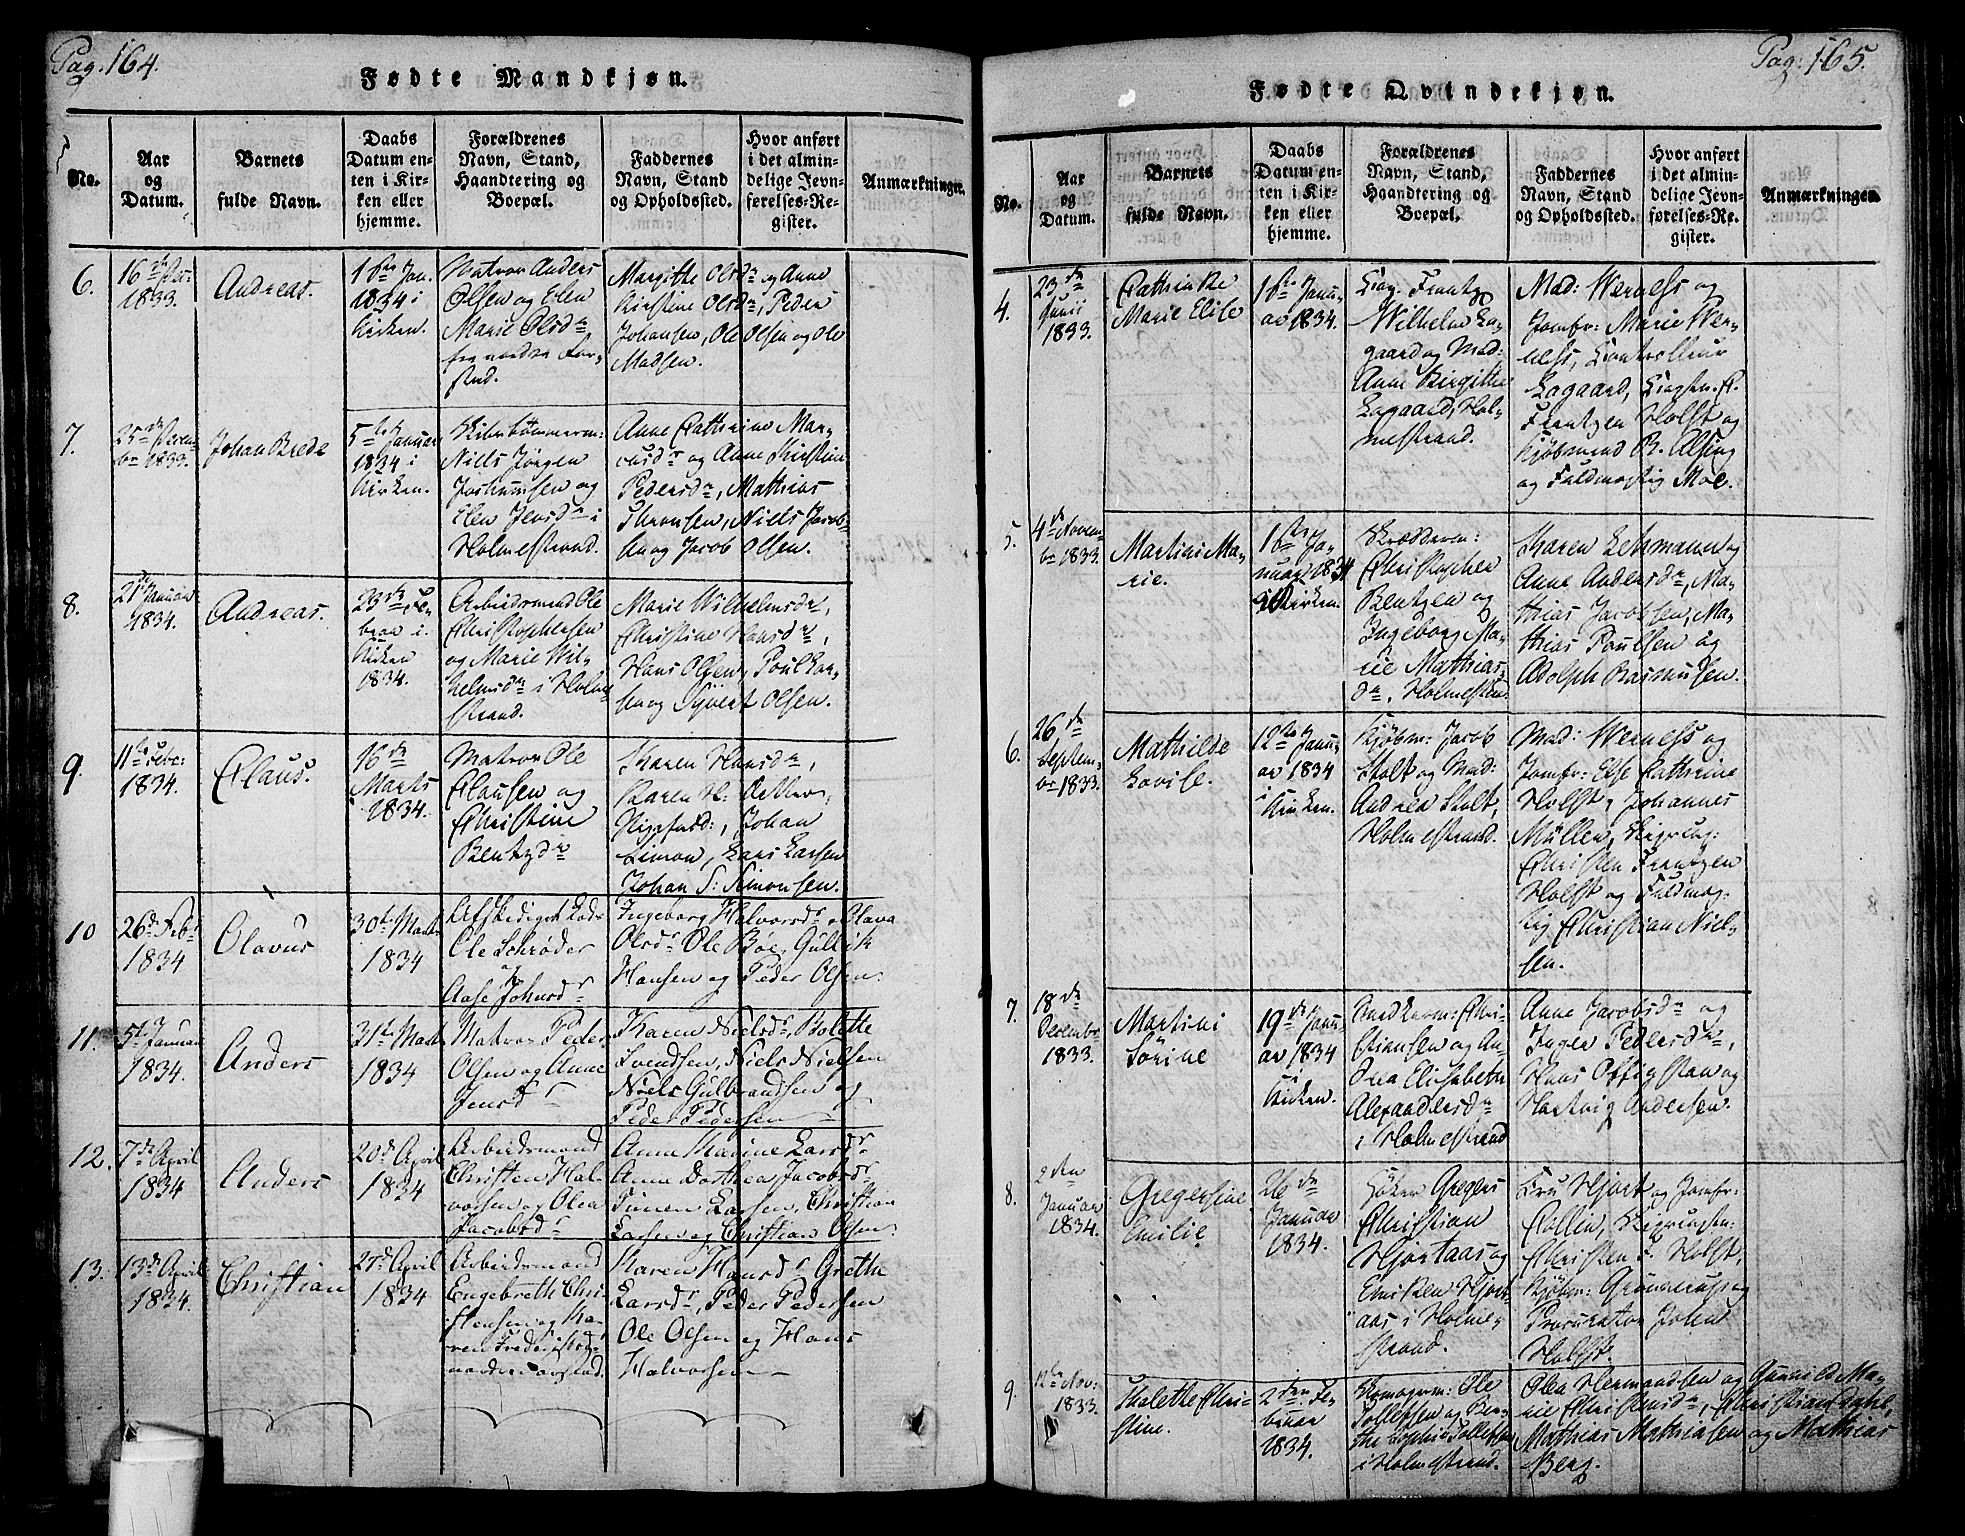 Pag. 164.
Fødte Mandkjøn.
No.
Aar
og
Datum.
Barnets
fulde Navn.
Daabs
Datum en-
ten i Kir-
ken eller
hjemme.
Forældrenes
Navn, Stand,
Haandtering og
Boepæl.
Faddernes
Navn, Stand
og Opholdssted.
Hvor anført
i det almin-
delige Jevn-
førelses-Re-
gister.
Anmærkninger.
6.
1833.
Andreas.
1834 i
Kirken.
Matros Anders
Olsen og Elen
Marie Olsdr
Margitte Olsdr og Anne
Kirstine Olsdr, Peder
Johansen, Ole Olsen og Ole
Madsen.
7.
1833.
Johan Brede
5te Januar
1834 i
Kirken.
Niels Jørgen
og
Elen Jensdr i
Holmestrand.
Anne Cathrine Mar-
cusdr og Anne Kirstine
Pedersdr, Mathias
Niels Jacob-
sen og Jacob Olsen.
8.
21de Januar
1834.
Andreas.
23de Fe-
bruar i
Kirken
1834.
Arbeidsmand Ole
Christophersen
og Marie Wil-
helmsdr i Holme-
strand.
Marie Wilhelmsdr,
Christine Hansdr,
Hans Olsen, Poul Lar-
sen og Syvert Olsen.
9.
11te Febr.
1834.
Claus.
16de
Marts
1834.
Matros Ole
Clausen og
Christine
Bentzdr
Karen Hansdr,
Johan
Simon, Lars Larsen
Johan S: Simonsen.
10
26d Febr
1834
Olavus
30t Mart
1834
Afskediget Lods
Ole Schrøder
og
Aase Johnsdr
Ingeborg Halvorsdr, Olava
Olsdr Ole Bøe, Gullik
Hansen og Peder Olsen.
11.
5t Januar
1834.
Anders
31t Mart
1834
Matros Peder
Olsen og Anne
Jensdr
Karen Nielsdr, Bolette
Svendsen, Niels Nielsen
Niels Gulbrandsen og
Peder Pedersen
12.
7de April
1834
Anders
20d April
1834
Arbeidsmand
Christen Hal-
vorsen og Olea
Jacobsdr
Anne Marine Larsdr
Anne Dorthea Jacobsdr
Simen Larsen, Christian
Larsen og Christian Olsen
13.
13d April
1834.
Christian
27d April
1834
Arbeidsmand
Engebreth Chri-
stensen og Ka-
ren
Karen Hansdr Grethe
Larsdr, Peder Pedersen
Ole Olsen og Hans
Halvorsen
Pag: 165.
Fødte Qvindekjøn.
No.
Aar
og
Datum.
Barnets
fulde Navn.
Daabs
Datum en-
ten i Kir-
ken eller
hjemme.
Forældrenes
Navn, Stand,
Haandtering og
Boepæl.
Faddernes
Navn, Stand
og Opholdssted.
Hvor anført
i det almin-
delige Jevn-
førelses-Re-
gister.
Anmærkninger.
4.
23de
Junii
1833.
Cathinke
Marie Elise
Janu-
ar 1834.
Wilhelm La-
gaard og Mad:
Anne Birgithe
Lagaard, Hol-
mestrand.
Mad: Werness og
Jomfr: Marie Wer-
ness, Controlleur
Lagaard,
Frantzen Holst og
Kjøbmend B. Alsing
og Fuldmægtig Moe.
5.
4de Novem-
br 1833.
Martine Ma-
rie.
16de Ja-
nuar 1834
i Kirken.
Christopher
Bentzen og
Ingeborg Ma-
rie Mathias-
dr, Holmestrand.
Karen Lehmann og
Anne Andersdr, Ma-
thias Jacobsen, Ma-
thias Poulsen og
Adolph Rasmussen.
6.
26de
Septem-
br 1833.
Mathilde
Lovise.
12te Janu-
ar 1834
i Kirken.
Kjøbm: Jacob
Stolt og Mad:
Andrea Stolt,
Holmestrand.
Mad: Werness og
Jomfr: Else Cathrine
Holst, Johannes
Müller,
Christen Frantzen
Holst og Fuldmæg-
tig Christian Niel-
sen.
7.
18de
Decembr
1833.
Martine
Sørine
19de Janu-
ar 1834
i
Kirken.
Chri-
stiansen og An-
drea Elisabeth
Alexandersdr
i Holmestrand
Anne Jacobsdr og
Inger Pedersdr,
Hans og
Hartvig Andersen.
8.
2den
Januar
1834.
Gregersine
Emilie
26de
Januar
1834.
Gregers
Christian
Hjortaas og
Hjort-
aas i Holme-
strand.
Fru Hjort og Jomfr:
Collin,
Christen F. Holst,
Kjøbm: Grønnerup og
Procurator Johan
Holst.
9.
12te Nov:
1833.
Christine.
2den Fe-
bruar
1834.
Ole
Tollefsen og Ber-
the Sophie Tollefsen
i Holmestrand.
Olea Hermandsen og Gunild Ma-
rie Christensdr, Christian
Mathias Mathiasen og Mathias
Berg.